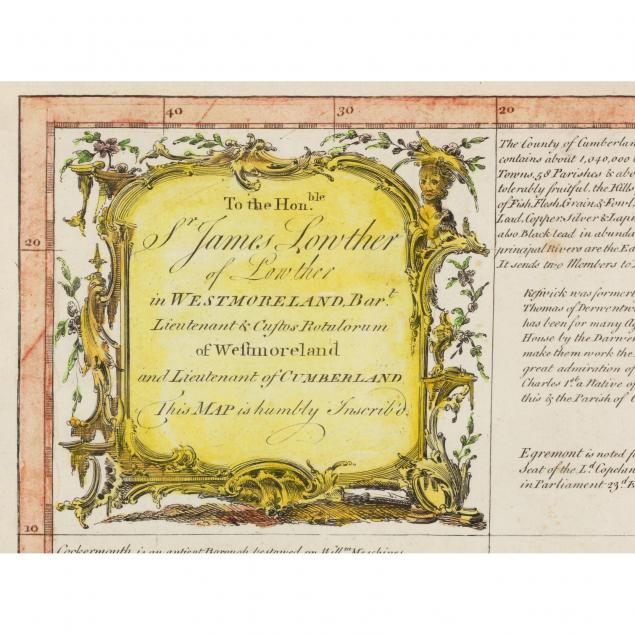 40
30
20
To the Hon.ble
Sr. James Lowther
of Lowther
in WESTMORELAND, Bar.t
Lieutenant & Custos Rotulorum
of Westmoreland
and Lieutenant of CUMBERLAND
This MAP is humbly Inscrib'd.
20
10
The County of Cumberlan
contains about 1,040,000
Towns, 58 Parishes & abo
tolerably fruitful, the Hills
of Fish, Flesh, Grain, & Fowl
Lead, Copper, Silver & Lapi
also Black lead in abunda
principal Rivers are the Ea
It sends two Members to
Keswick was formerl
Thomas of Derwentw
has been for many
House by the Darwen
make them work the
great admiration of
Charles 1.st a Native of
this & the Parish of
Egremont is noted f
Seat of the L.d Copelan
in Parliament 23.d
Cockermouth is an antient Borough bestowed on Will.m Meschines